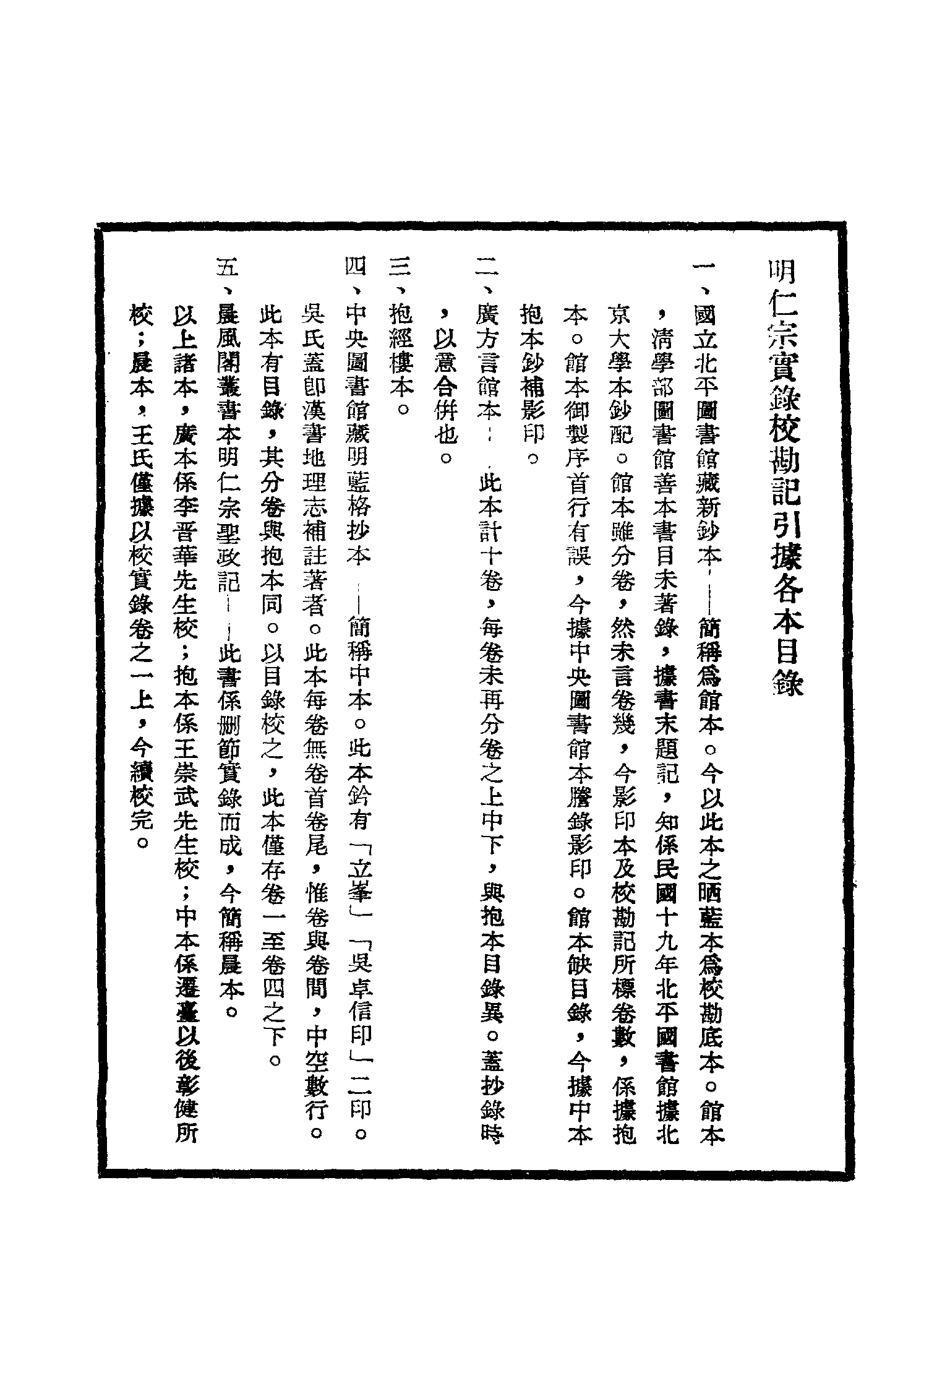 明仁宗實錄校勘記引據各本目錄
一、國立北平圖書館藏新鈔本——簡稱爲館本。今以此本之晒藍本爲校勘底本。館本
，清學部圖書館善本書目未著錄，據書末題記，知係民國十九年北平國書館據北
京大學本鈔配。館本雖分卷，然未言卷幾，今影印本及校勘記所標卷數，係據抱
本。館本御製序首行有誤，今據中央圖書館本謄錄影印。館本缺目錄，今據中本
抱本鈔補影印。
二、廣方言館本——此本計十卷，每卷未再分卷之上中下，與抱本目錄異。蓋抄錄時
，以意合倂也。
三、抱經樓本。
四、中央圖書館藏明藍格抄本——簡稱中本。此本鈐有「立峯」「吳卓信印」二印。
吳氏蓋卽漢書地理志補註著者。此本每卷無卷首卷尾，惟卷與卷間，中空數行。
此本有目錄，其分卷與抱本同。以目錄校之，此本僅存卷一至卷四之下。
五、晨風閣叢書本明仁宗聖政記——此書係刪節實錄而成，今簡稱晨本。
以上諸本，廣本係李晋華先生校；抱本係王崇武先生校；中本係遷臺以後彰健所
校；晨本，王氏僅據以校實錄卷之一上，今續校完。